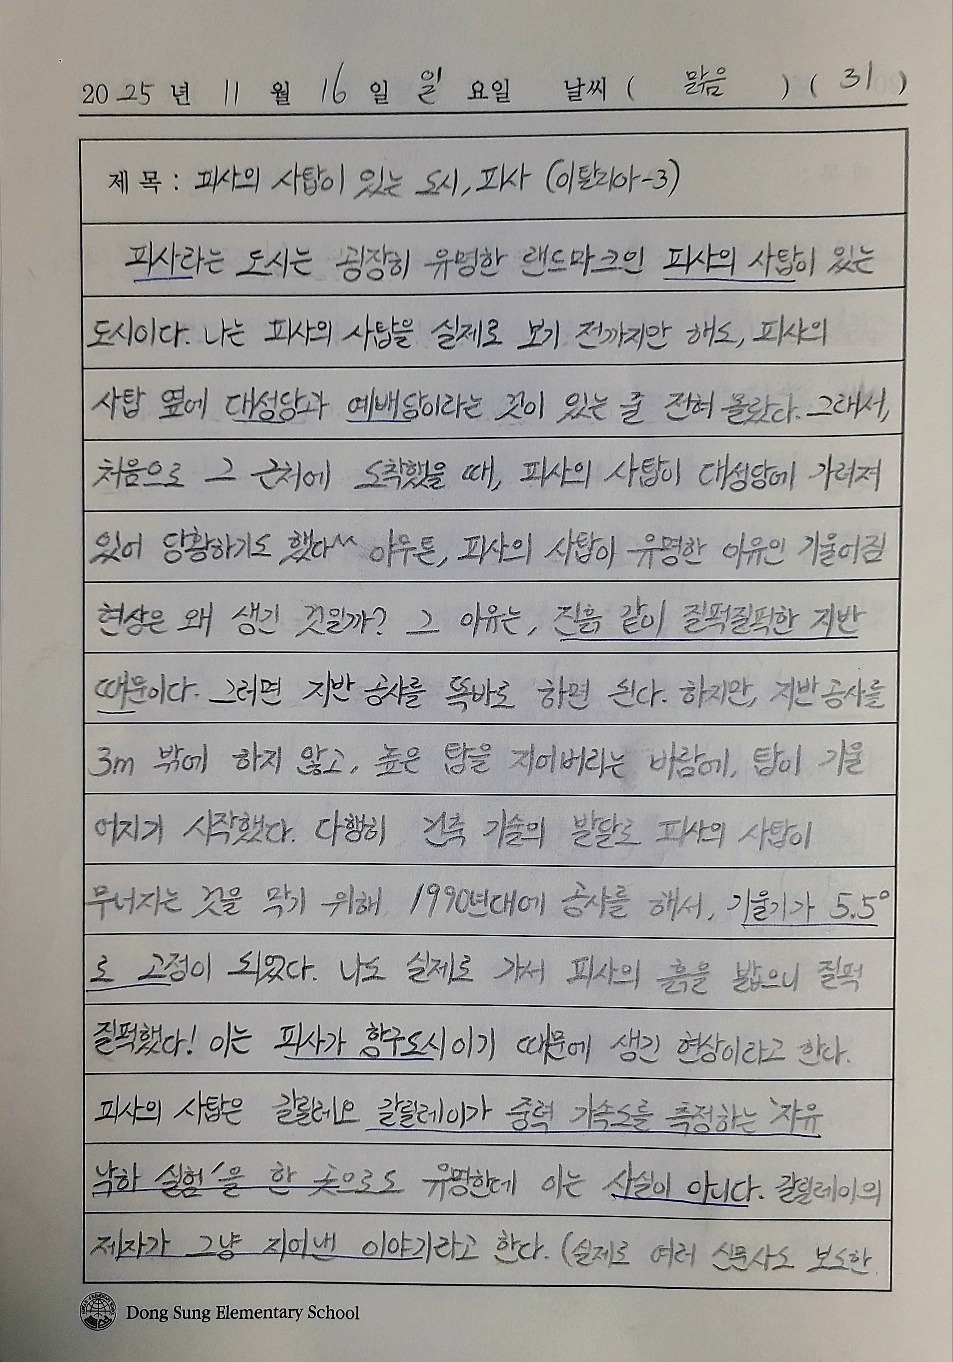 2025년 11월 16일 일요일 날씨 ( 맑음 ) ( 31 )
제목 : 피사의 사탑이 있는 도시, 피사 (이탈리아-3)
피사라는 도시는 굉장히 유명한 랜드마크인 피사의 사탑이 있는
도시이다. 나는 피사의 사탑을 실제로 보기 전까지만 해도, 피사의
사탑 옆에 대성당과 예배당이라는 것이 있는 줄 전혀 몰랐다. 그래서,
처음으로 그 근처에 도착했을 때, 피사의 사탑이 대성당에 가려져
있어 당황하기도 했다^^ 아무튼, 피사의 사탑이 유명한 이유인 기울어질
현상은 왜 생긴 것일까? 그 이유는, 진흙 같이 질퍽질퍽한 지반
때문이다. 그러면 지반 공사를 똑바로 하면 된다. 하지만, 지반공사를
3m 밖에 하지 않고, 높은 탑을 지어버리는 바람에, 탑이 기울
어지기 시작했다. 다행히 건축 기술의 발달로 피사의 사탑이
무너지는 것을 막기 위해 1990년대에 공사를 해서, 기울기가 5.5°
로 고정이 되었다. 나도 실제로 가서 피사의 흙을 밟으니 질퍽
질퍽했다! 이는 피사가 항구도시이기 때문에 생긴 현상이라고 한다.
피사의 사탑은 갈릴레오 갈릴레이가 중력 가속도를 측정하는 '자유
낙하 실험'을 한 곳으로도 유명한데 이는 사실이 아니다. 갈릴레이의
제자가 그냥 지어낸 이야기라고 한다. (실제로 여러 신문사도 보도한
Dong Sung Elementary School